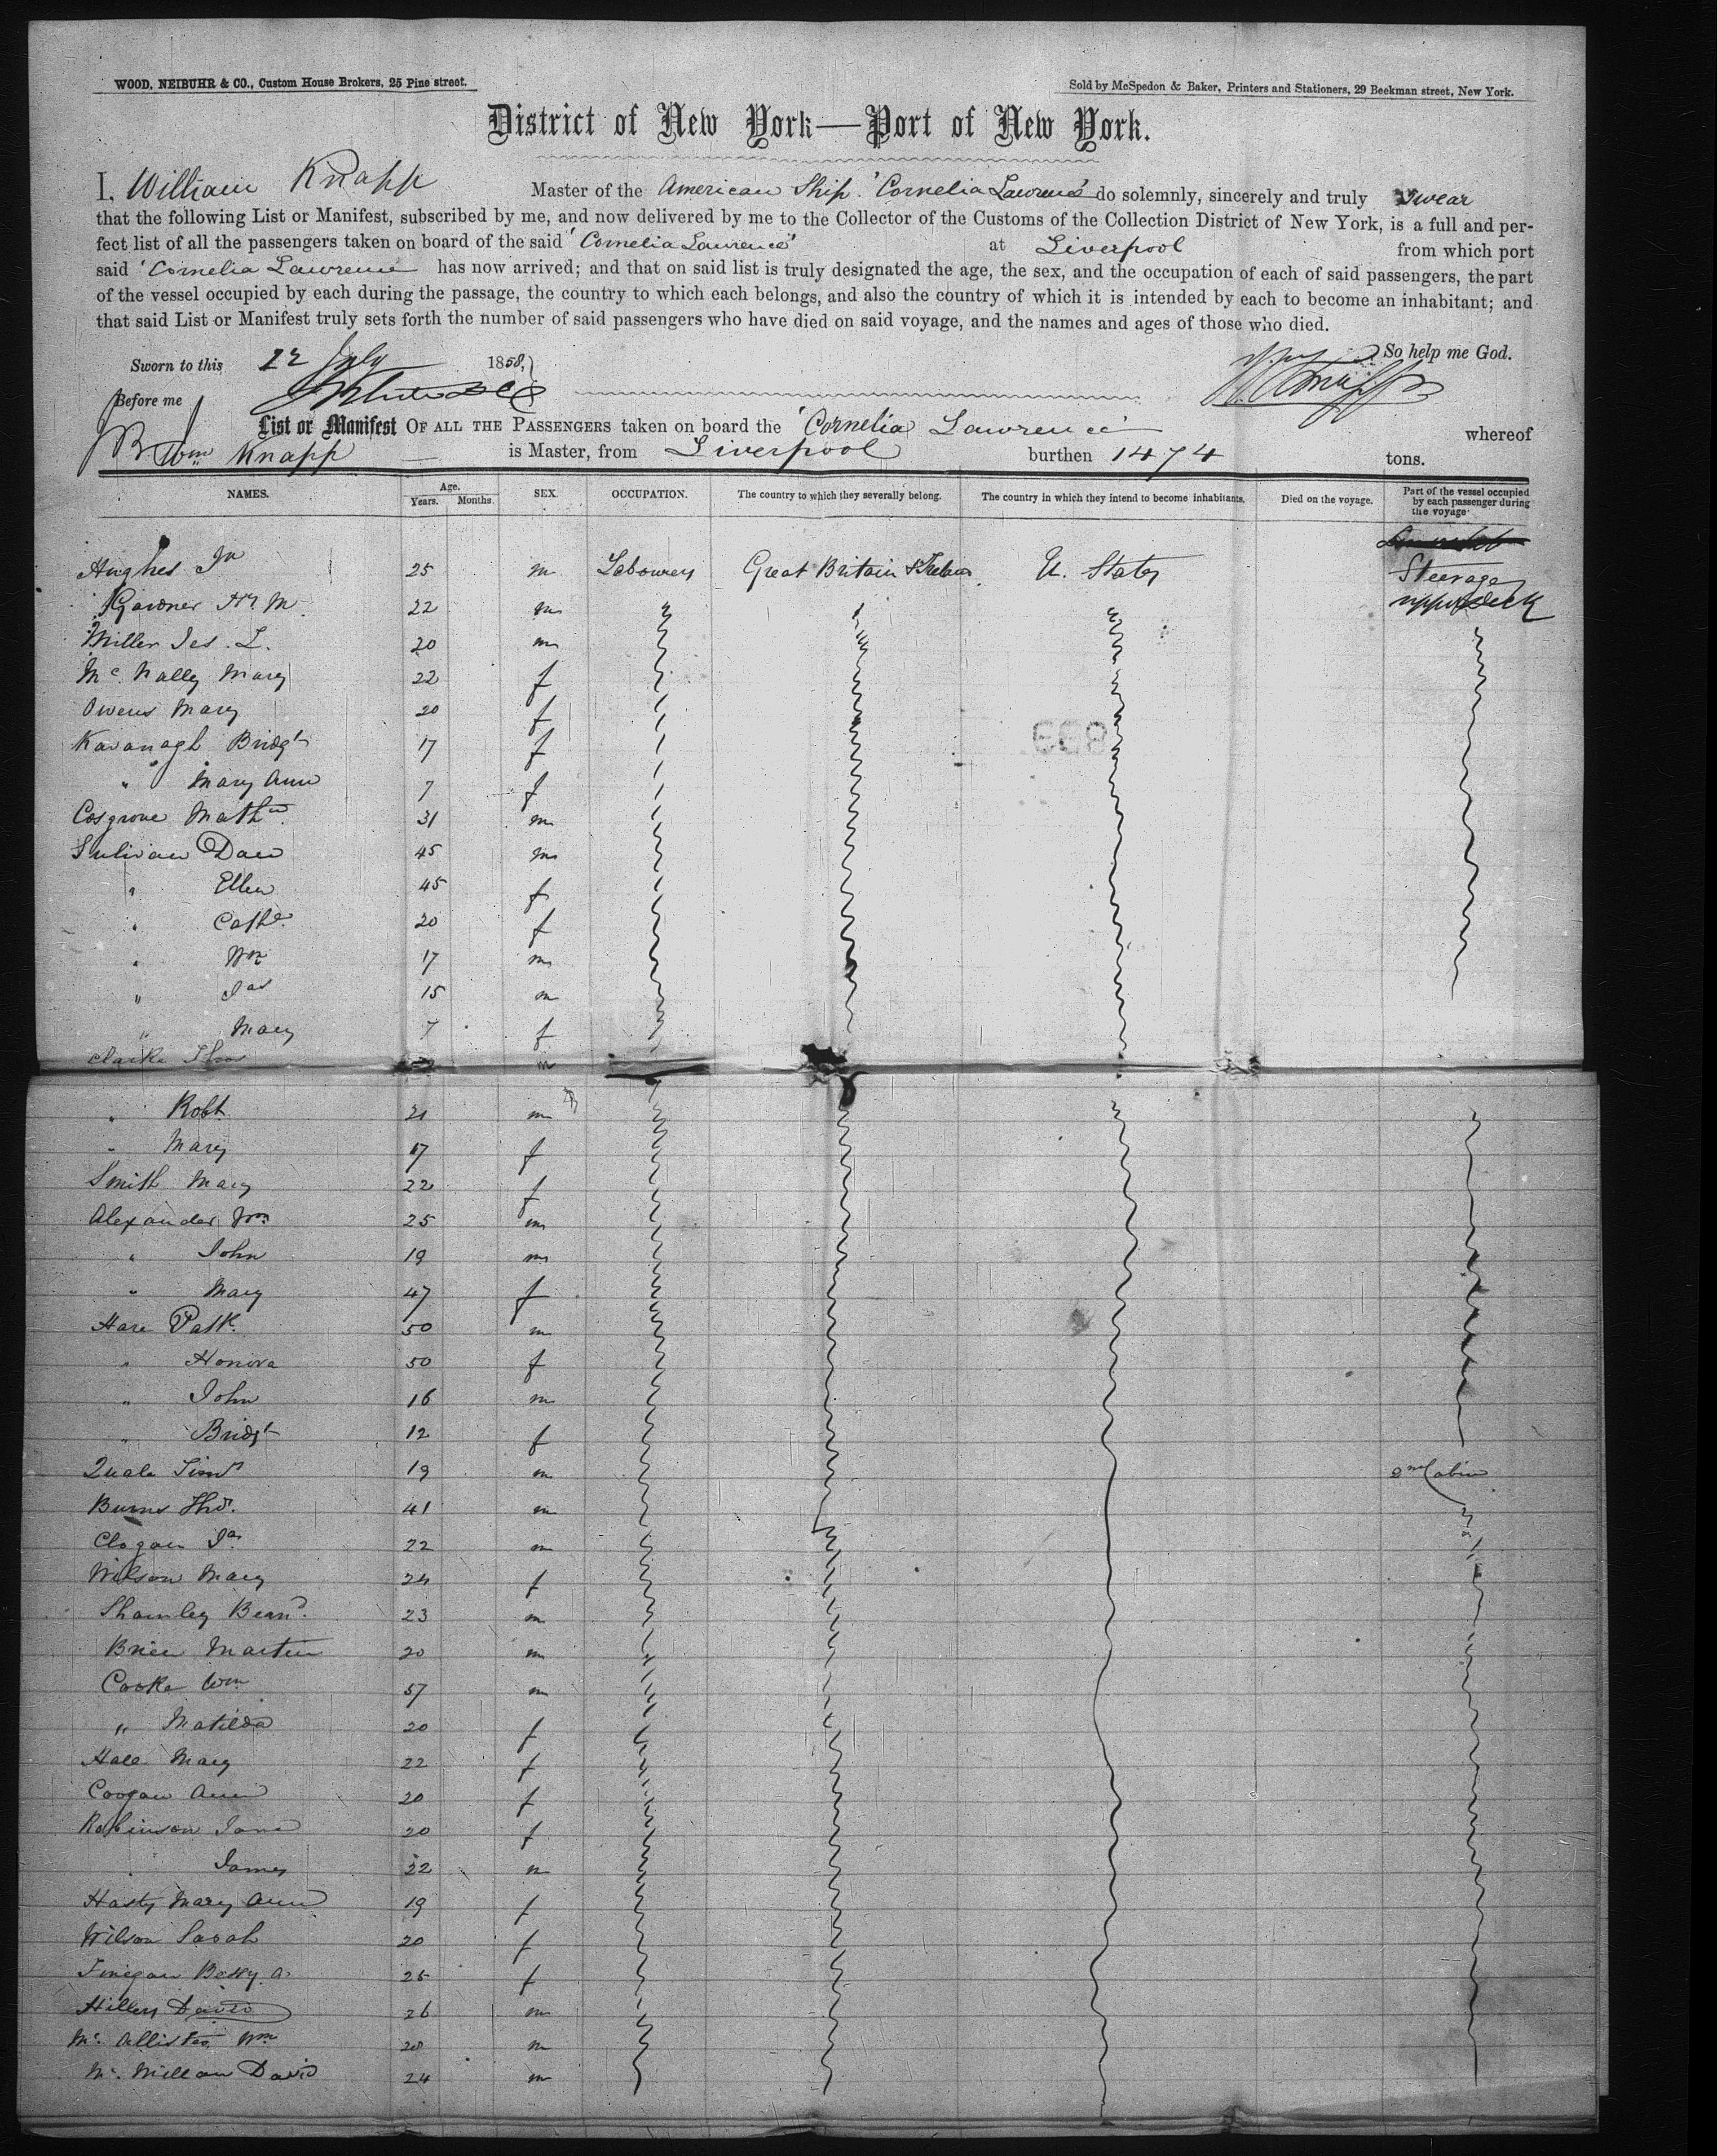 WOOD, NEIBUHR & CO., Custom House Brokers, 25 Pine street.
Sold by McSpedon & Baker, Printers and Stationers, 29 Beekman street, New York.
District of New York—Port of New York.
I, William Knapp Master of the American Ship 'Cornelia Lawrence' do solemnly, sincerely and truly swear
that the following List or Manifest, subscribed by me, and now delivered by me to the Collector of the Customs of the Collection District of New York, is a full and per-
fect list of all the passengers taken on board of the said 'Cornelia Lawrence' at Liverpool from which port
said 'Cornelia Lawrence has now arrived; and that on said list is truly designated the age, the sex, and the occupation of each of said passengers, the part
of the vessel occupied by each during the passage, the country to which each belongs, and also the country of which it is intended by each to become an inhabitant; and
that said List or Manifest truly sets forth the number of said passengers who have died on said voyage, and the names and ages of those who died.
So help me God.
Sworn to this 22 July 1858,
Before me
Knapp
List or Manifest OF ALL THE PASSENGERS taken on board the 'Cornelia Lawrence' whereof
Wm Knapp is Master, from Liverpool burthen 1474 tons.
NAMES. Age. Years. Months. SEX. OCCUPATION. The country to which they severally belong. The country in which they intend to become inhabitants. Died on the voyage. Part of the vessel occupied by each passenger during the voyage
Hughes Jn 25 m Labourer Great Britain & Ireland U. States Steerage
Gardner Hy. M. 22 m upper deck
Miller Jes. L. 20 m
Mc. Nally Mary 22 f
Owens Mary 20 f
Kavanagh Bridgt 17 f
" Mary Ann 7 f
Cosgrove Mathw. 31 m
Sulivan Danl 45 m
" Ellen 45 f
" Cathe. 20 f
" Wm 17 m
" Jas 15 m
" Mary 7 f
Clarke Thos m
" Robt 21 m
" Mary 17 f
Smith Mary 22 f
Alexander Wm 25 m
" John 19 m
" Mary 47 f
Hare Patk. 50 m
" Honora 50 f
" John 16 m
" Bridgt 12 f
Quale Timy 19 m 2nd Cabin
Burns Thos. 41 m
Clogan Jas 22 m
Wilson Mary 24 f
Shanley Bernd. 23 m
Brien Martin 20 m
Cooke Wm 57 m
" Matilda 20 f
Hall Mary 22 f
Coogan Ann 20 f
Robinson Jane 20 f
" James 22 m
Hasty Mary Ann 19 f
Wilson Sarah 20 f
Finegan Bessy A. 25 f
Hillery David 26 m
Mc. Allister Wm 20 m
Mc. Millan David 24 m